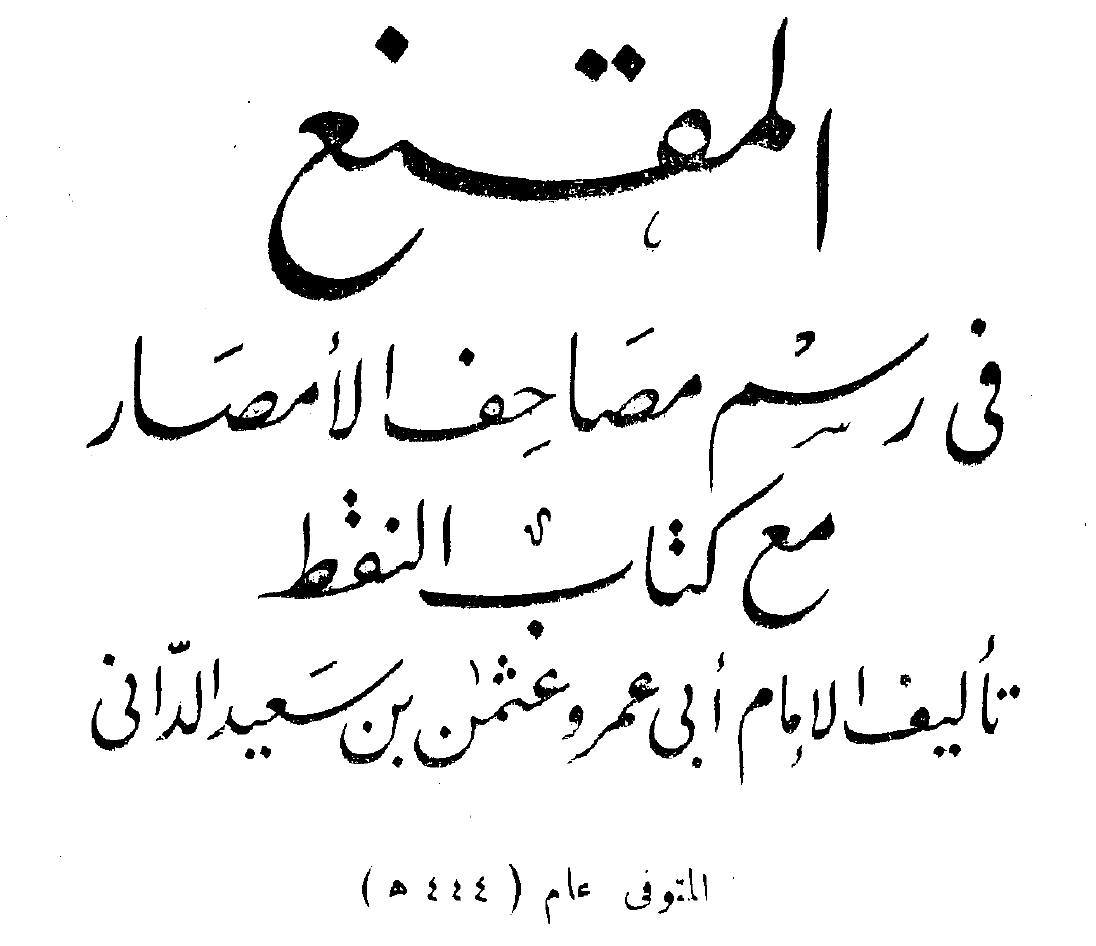 المقنع
في رسم مصاحف الأمصار
مع كتاب النقط
تأليف الإمام أبي عمرو عثمن بن سعيد الداني
المتوفى عام ( ٤٤٤ هـ )